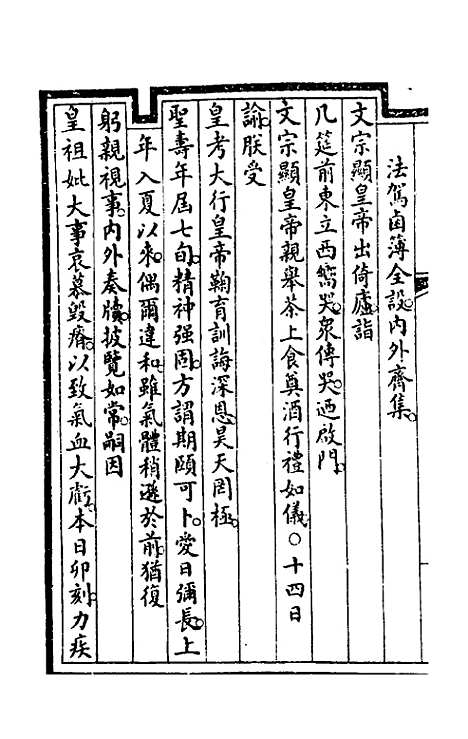 法駕鹵簿全設。內外齊集。
文宗顯皇帝出倚廬。詣
几筵前東立西嚮哭。衆傳哭。迺啟門。
文宗顯皇帝親舉茶上食奠酒行禮如儀。〇十四日
諭。朕受
皇考大行皇帝鞠育訓誨。深恩昊天罔極。
聖壽年屆七旬。精神强固。方謂期頤可卜。愛日彌長。上
年入夏以來。偶爾違和。雖氣體稍遜於前。猶復
躬親視事。內外奏牘。披覽如常。嗣因
皇祖妣大事。哀慕毀瘠。以致氣血大虧。本日卯刻。力疾